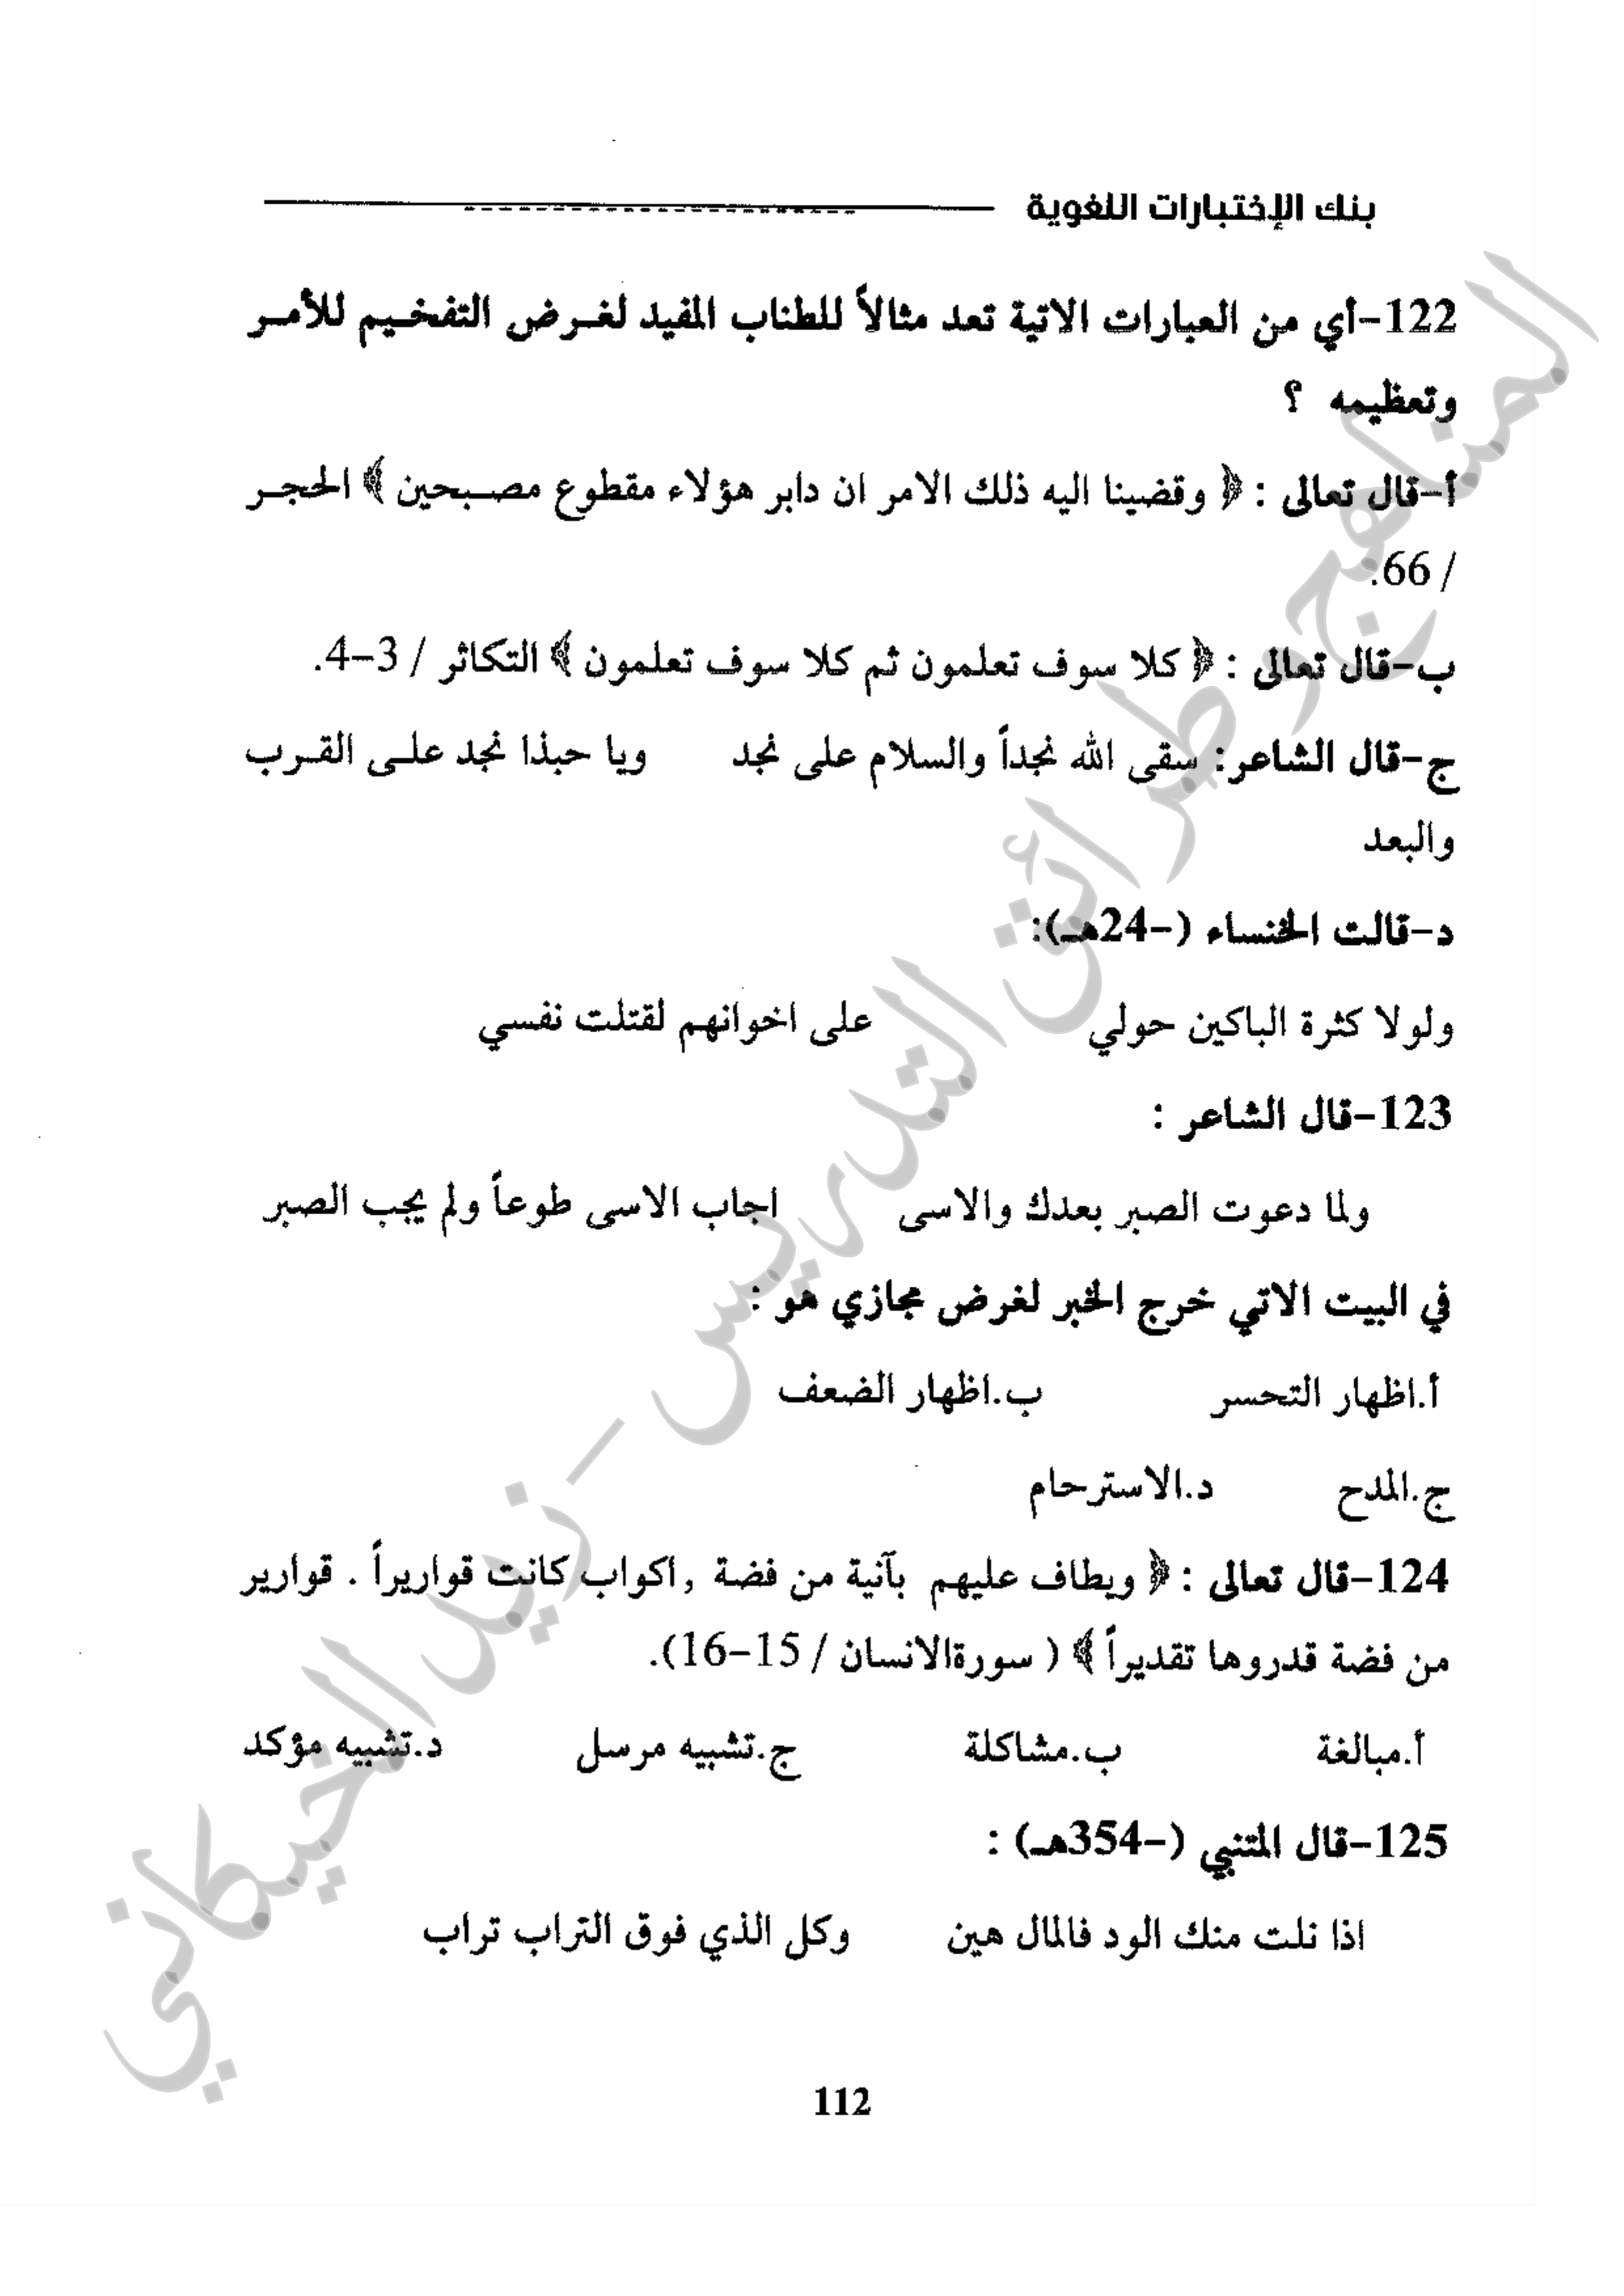 بنك الإختبارات اللغوية
122-أي من العبارات الاتية تعد مثالاً للطناب المفيد لغرض التفخيم للأمر
وتعظيمه ؟
أ-قال تعالى : ﴿ وقضينا اليه ذلك الامر ان دابر هؤلاء مقطوع مصبحين ﴾ الحجر
/ 66.
ب-قال تعالى : ﴿ كلا سوف تعلمون ثم كلا سوف تعلمون ﴾ التكاثر / 3-4.
ج-قال الشاعر: سقى الله نجداً والسلام على نجد ويا حبذا نجد على القرب
والبعد
د-قالت الخنساء (-24هـ):
ولولا كثرة الباكين حولي على اخوانهم لقتلت نفسي
123-قال الشاعر :
ولما دعوت الصبر بعدك والاسى اجاب الاسى طوعاً ولم يجب الصبر
في البيت الاتي خرج الخبر لغرض مجازي هو :
أ.اظهار التحسر ب.اظهار الضعف
ج.المدح د.الاسترحام
124-قال تعالى : ﴿ ويطاف عليهم بآنية من فضة ,اكواب كانت قواريراً . قوارير
من فضة قدروها تقديراً ﴾ ( سورةالانسان / 15-16).
أ.مبالغة ب.مشاكلة ج.تشبيه مرسل د.تشبيه مؤكد
125-قال المتنبي (-354هـ) :
اذا نلت منك الود فالمال هين وكل الذي فوق التراب تراب
112
المناهج وطرائق التدريس - زيد الخيكاني